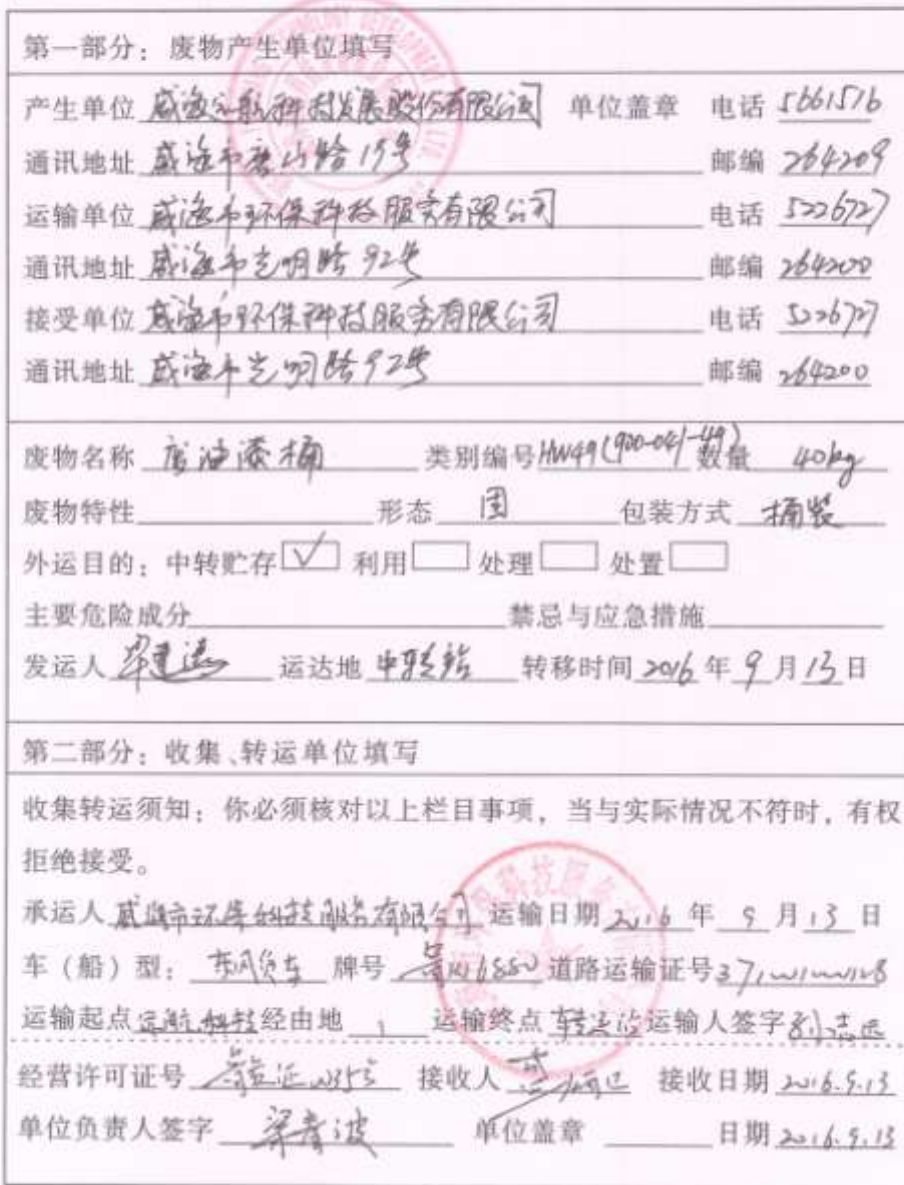 第一部分：废物产生单位填写
产生单位 威海远航科技发展股份有限公司 单位盖章 电话 5661516
通讯地址 威海市唐山路19号 邮编 264209
运输单位 威海市环保科技服务有限公司 电话 5226727
通讯地址 威海市光明路92号 邮编 264200
接受单位 威海市环保科技服务有限公司 电话 5226727
通讯地址 威海市光明路92号 邮编 264200
废物名称 废油漆桶 类别编号 HW49(900-041-49) 数量 40kg
废物特性 形态 固 包装方式 桶装
外运目的：中转贮存 √ 利用 处理 处置
主要危险成分 禁忌与应急措施
发运人 运达地 中转站 转移时间 2016 年 9 月 13 日
第二部分：收集、转运单位填写
收集转运须知：你必须核对以上栏目事项，当与实际情况不符时，有权
拒绝接受。
承运人 威海市环保科技服务有限公司 运输日期 2016 年 9 月 13 日
车（船）型： 东风货车 牌号 道路运输证号
运输起点 远航科技 经由地 运输终点 运输人签字 刘志远
经营许可证号 接收人 接收日期 2016.9.13
单位负责人签字 单位盖章 日期 2016.9.13